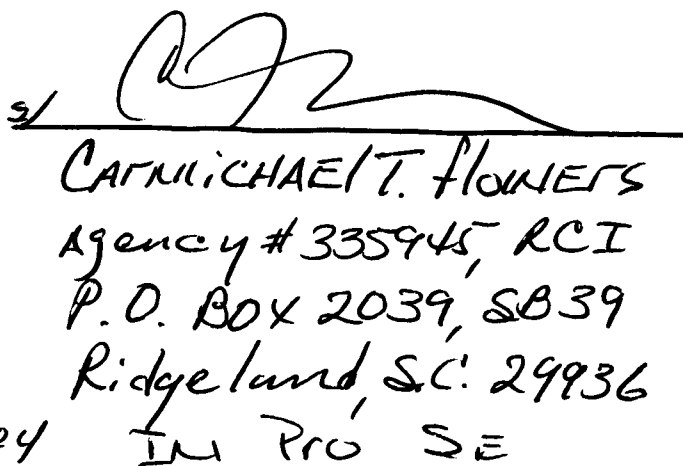 s/
CArmichAEl T. flowErs
Agency # 335945, RCI
P.O. BOX 2039, SB39
Ridgeland, S.C. 29936
IN Pro SE